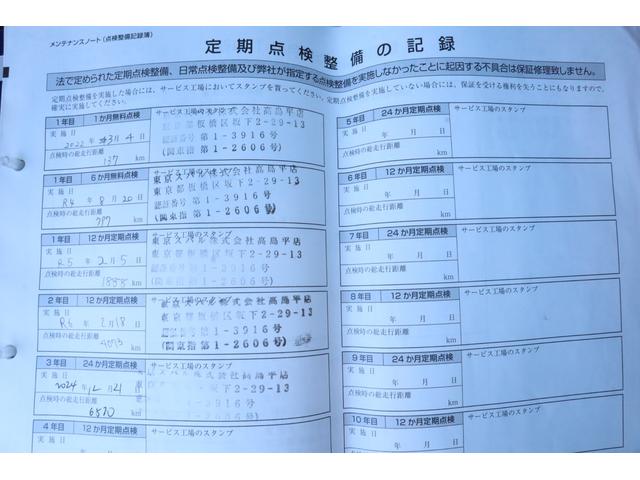 メンテナンスノート(点検整備記録簿)
定期点検整備の記録
法で定められた定期点検整備、日常点検整備及び弊社が指定する点検整備を実施しなかったことに起因する不具合は保証修理致しません。
定期点検整備を実施した場合には、サービス工場においてスタンプを買ってください。定期点検整備を実施していない場合は、保証を受ける権利を失うこともなりますので、
確実に実施してください。
1年目 1か月無料点検
サービス工場のスタンプ
実施日
2022年3月4日
点検時の総走行距離
137 km
株式会社高島平店
東京都板橋区坂下2-29-13
認証番号 第1-3916号
(関東指 第1-2606号)
1年目 6か月無料点検
サービス工場のスタンプ
実施日
R4年8月20日
点検時の総走行距離
787 km
東京スバル株式会社高島平店
東京都板橋区坂下2-29-13
認証番号 第1-3916号
(関東指 第1-2606号)
1年目 12か月定期点検
サービス工場のスタンプ
実施日
R5年2月5日
点検時の総走行距離
km
東京スバル株式会社高島平店
東京都板橋区坂下2-29-13
認証番号 第1-3916号
(関東指 第1-2606号)
2年目 12か月定期点検
サービス工場のスタンプ
実施日
R6年2月18日
点検時の総走行距離
km
株式会社高島平店
東京都板橋区坂下2-29-13
認証番号 第1-3916号
(関東指 第1-2606号)
3年目 24か月定期点検
サービス工場のスタンプ
実施日
2024年12月21日
点検時の総走行距離
km
スバル株式会社高島平店
板橋区坂下2-29-13
第1-3916号
第1-2606号)
4年目 12か月定期点検
サービス工場のスタンプ
実施日
年 月 日
5年目 24か月定期点検
サービス工場のスタンプ
実施日
年 月 日
点検時の総走行距離
km
6年目 12か月定期点検
サービス工場のスタンプ
実施日
年 月 日
点検時の総走行距離
km
7年目 24か月定期点検
サービス工場のスタンプ
実施日
年 月 日
点検時の総走行距離
km
8年目 12か月定期点検
サービス工場のスタンプ
実施日
年 月 日
点検時の総走行距離
km
9年目 24か月定期点検
サービス工場のスタンプ
実施日
年 月 日
点検時の総走行距離
km
10年目 12か月定期点検
サービス工場のスタンプ
実施日
年 月 日